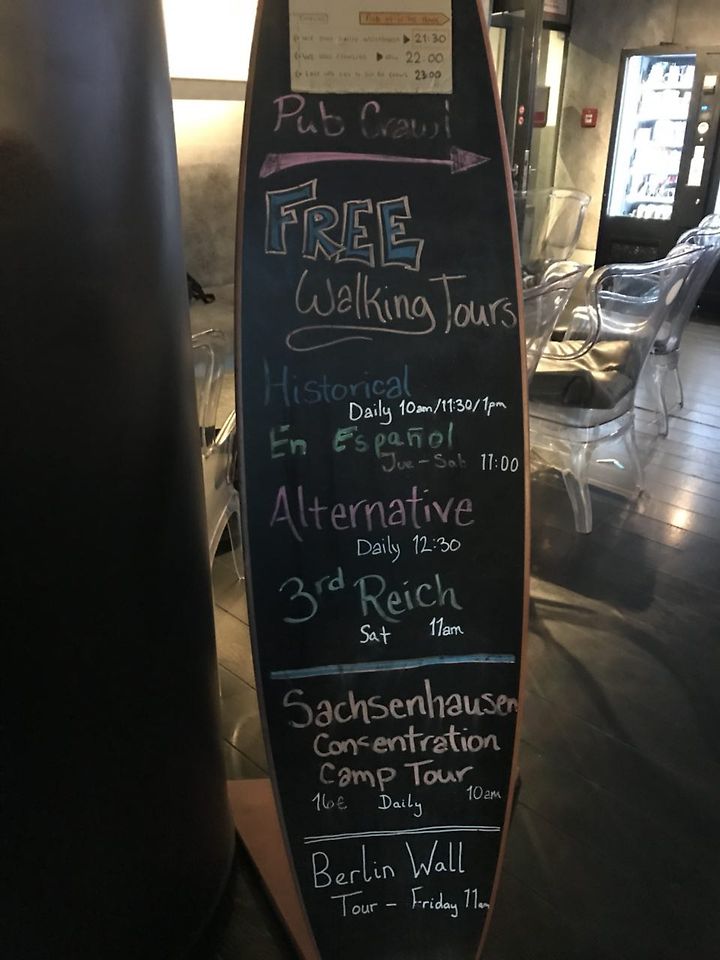 21:30
22:00
23:00
Pub Crawl
FREE
Walking Tours
Historical
Daily 10am/11:30/1pm
En Español
Jue - Sab 11:00
Alternative
Daily 12:30
3rd Reich
Sat 11am
Sachsenhausen
Consentration
Camp Tour
16€ Daily 10am
Berlin Wall
Tour - Friday 11am